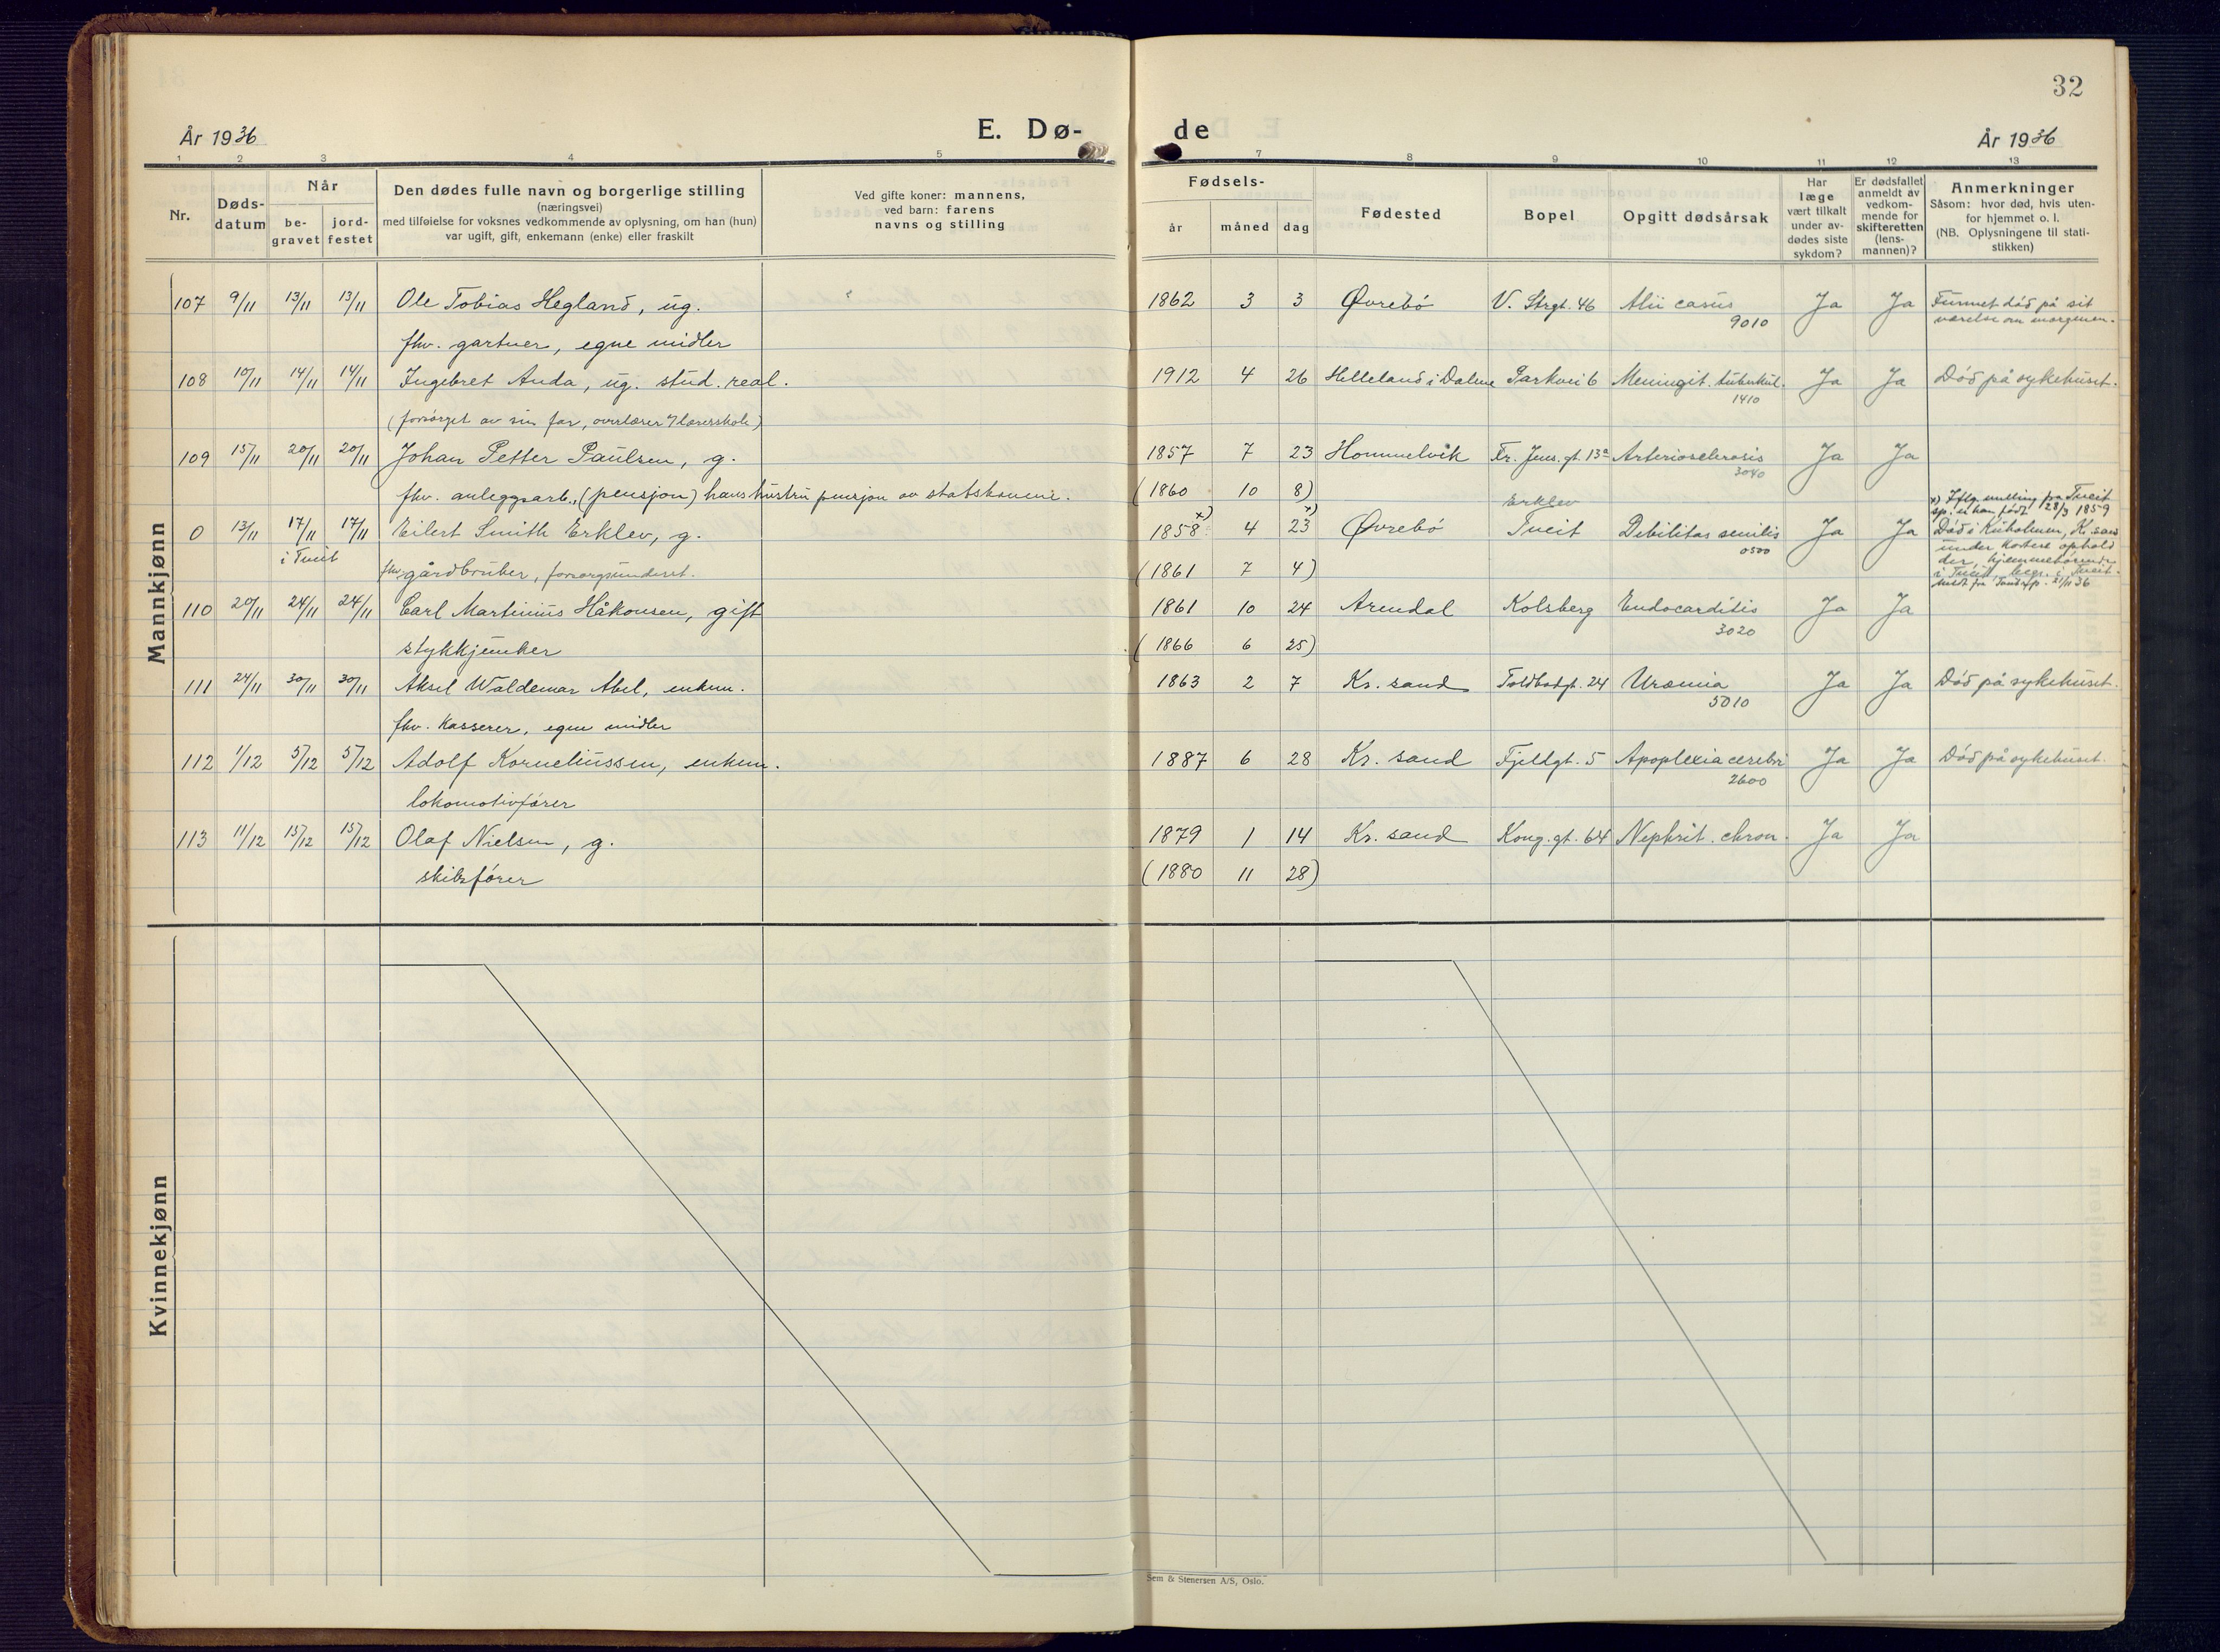 32
År 1936
E. Dø-
de
År 1936
1 2 3 4 5
7 8 9 10 11 12 13
Nr.
Døds-
datum
Når
be-
gravet
jord-
festet
Den dødes fulle navn og borgerlige stilling
(næringsvei)
med tilføielse for voksnes vedkommende av oplysning, om han (hun)
var ugift, gift, enkemann (enke) eller fraskilt
Ved gifte koner: mannens,
ved barn: farens
navns og stilling
Fødsels-
år
måned
dag
Fødested
Bopel
Opgitt dødsårsak
Har
læge
vært tilkalt
under av-
dødes siste
sykdom?
Er dødsfallet
anmeldt av
vedkom-
mende for
skifteretten
(lens-
mannen)?
Anmerkninger
Såsom: hvor død, hvis uten-
for hjemmet o. l.
(NB. Oplysningene til stati-
stikken)
Mannkjønn
107 9/11 13/11 13/11 Ole Tobias Hegland, ug. 1862 3 3 Øvrebö V. Strgt. 46 Alii casus Ja Ja Funnet död på sit
9010 værelse om morgenen.
fhv. gartner, egne midler
108 10/11 14/11 14/11 Ingebret Anda, ug. stud. real. 1912 4 26 Helleland i Dalene Parkvei 6 Meningit. tuberkul. Ja Ja Död på sykehuset.
1410
(forsörget av sin far, overlærer v/ lærerskole)
109 15/11 20/11 20/11 Johan Petter Paulsen, g. 1857 7 23 Hommelvik Fr. Jens. gt. 13a Arteriosclerosis Ja Ja
3040
fhv. anleggsarb., (pensjon) hans hustru pensjon av statskassene. (1860 10 8)
x) Iflg. melling fra Tveit
sp. er han född 28/3 1859
Erklev
0 13/11 17/11 17/11 Eilert Smith Erklev, g. 1858 x) 4 23 x) Øvrebö Tveit Debilitas senilis Ja Ja Död i Kuholmen, Kr.sand
i Tveit 0500 under kortere ophold
fhv. gårdbruker, forsorgsunderst. (1861 7 4) der, hjemmehörende
i Tveit, begr. i Tveit.
21/11 36
110 20/11 24/11 24/11 Carl Martinius Håkonsen, gift 1861 10 24 Arendal Kolsberg Endocarditis Ja Ja
3020
stykkjunker (1866 6 25)
111 24/11 30/11 30/11 Aksel Waldemar Abel, enkem. 1863 2 7 Kr. sand Toldbodgt. 24 Uræmia Ja Ja Död på sykehuset.
5010
fhv. kasserer, egne midler
112 1/12 5/12 5/12 Adolf Korneliussen, enkem. 1887 6 28 Kr. sand Fjeldgt. 5 Apoplexia cerebri Ja Ja Död på sykehuset.
2600
lokomotivförer
113 11/12 15/12 15/12 Olaf Nielsen, g. 1879 1 14 Kr. sand Kong. gt. 64 Nephrit. chron. Ja Ja
skibsförer (1880 11 28)
Kvinnekjønn
Sem & Stenersen A/S, Oslo.